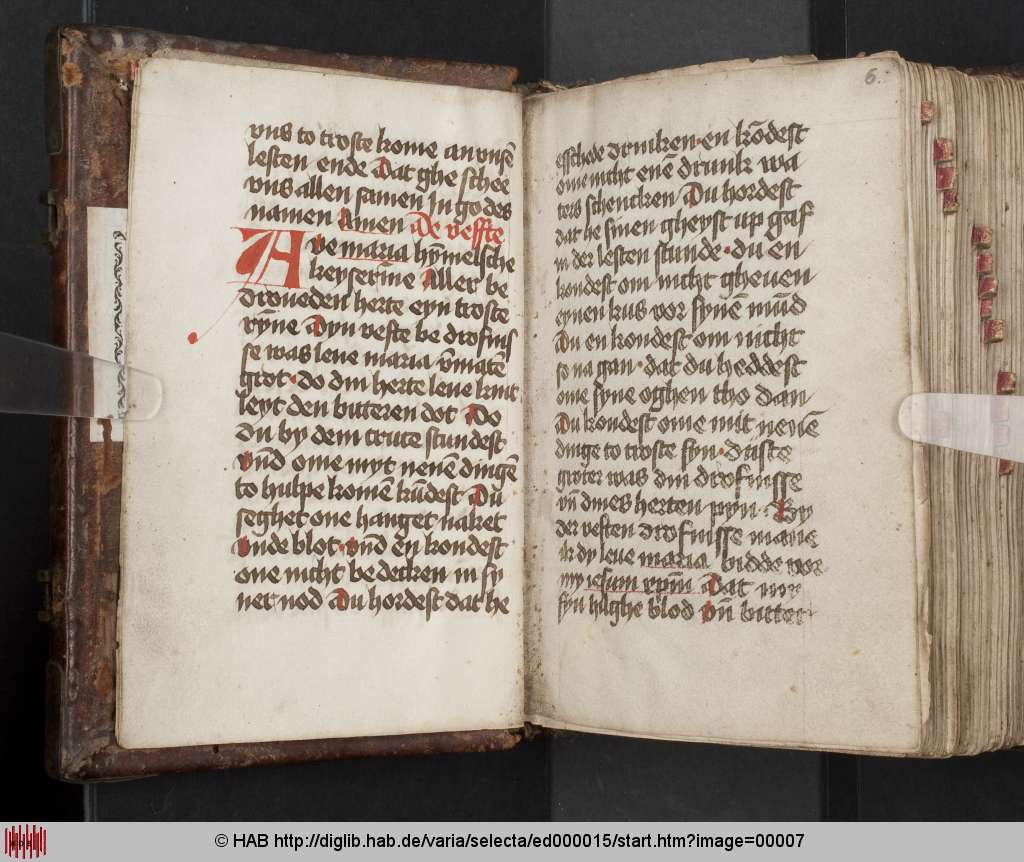 vns to troste kome an vnsē
lesten ende Dat ghe schee
vns allen samen jn godes
namen Amen De veffte
Ave maria hȳmelsche
keyserīne Aller be
droueden herte eyn troste
rȳne Dyn veste be drofnis
se was leue maria v̄matē
grot · do din herte leue kint
leyt den bitteren dot Do
du by dem cruce stundest
vn̄d ome myt nenē dingē
to hulpe komē kūdest Du
seghest one hanget naket
vnde blot · vn̄d en kondest
one nicht bedecken in sy
ner nod Du hordest dat he
esschede drinken · en kōdest
ome nicht enē drunk wa
ters schencken Du hordest
dat he sinen gheyst up gaf
in der lesten stunde · du en
kondest om nicht gheuen
eynen kus vor synē mūd
Du en kondest om nicht
so na gan · dat du heddest
ome syne oghen tho dan
Du kondest ome mit nenē
dinge to troste syn ·
groter was din drofnisse
vn̄ dines herten pyn · By
der vesten drofnisse mane
ik dy leue maria bidde vor
my iesum xpm̄ Dat my
syn hilghe blod vn̄ bitter
6.
© HAB http://diglib.hab.de/varia/selecta/ed000015/start.htm?image=00007